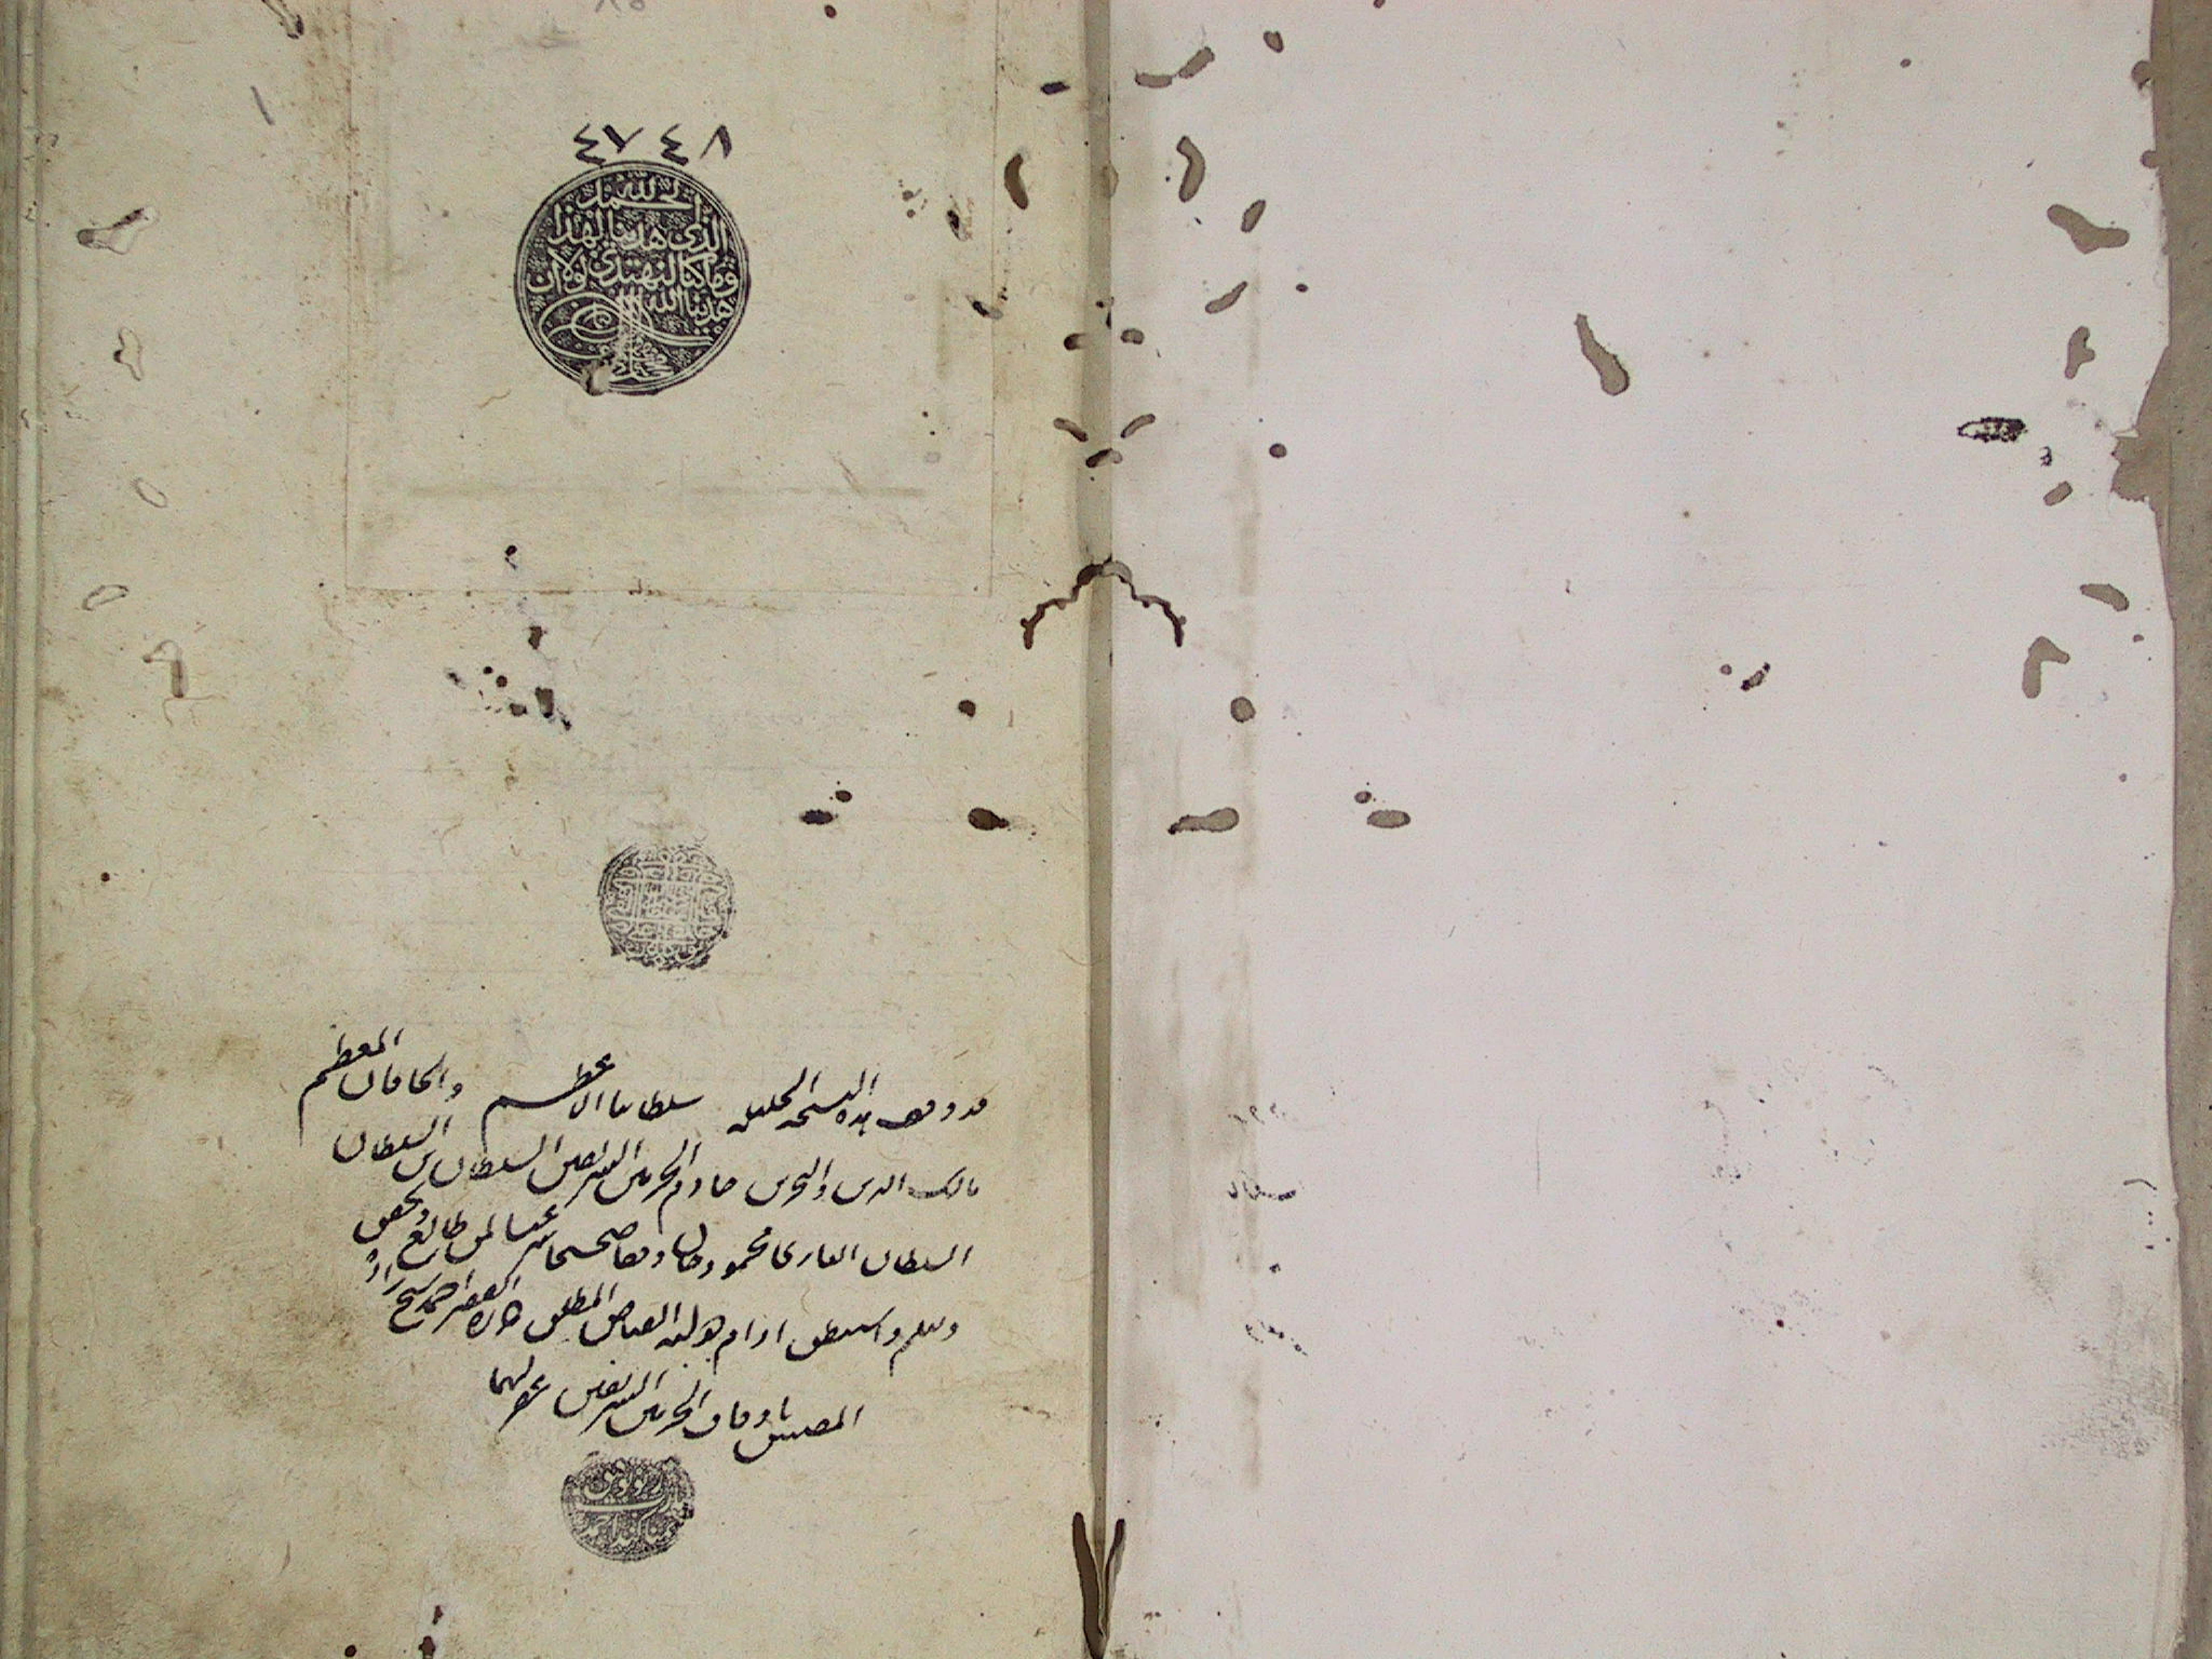 ٤٧٤٨
الحمد لله
الذي هدينا لهذا
وما كنا لنهتدي لولا ان
هدينا الله
قد وقف هذه النسخة الجليلة سلطاننا الاعظم والخاقان المعظم
مالك البرين والبحرين خادم الحرمين الشريفين السلطان بن السلطان
السلطان الغازي محمود خان وقفا صحيحا شرعيا لمن طالع وتحقق
وتعلم واستنطق ادام هو لبه الفياض المطلق حرره الفقير احمد شيخ زاده
المفتش باوقاف الحرمين الشريفين غفر لهما